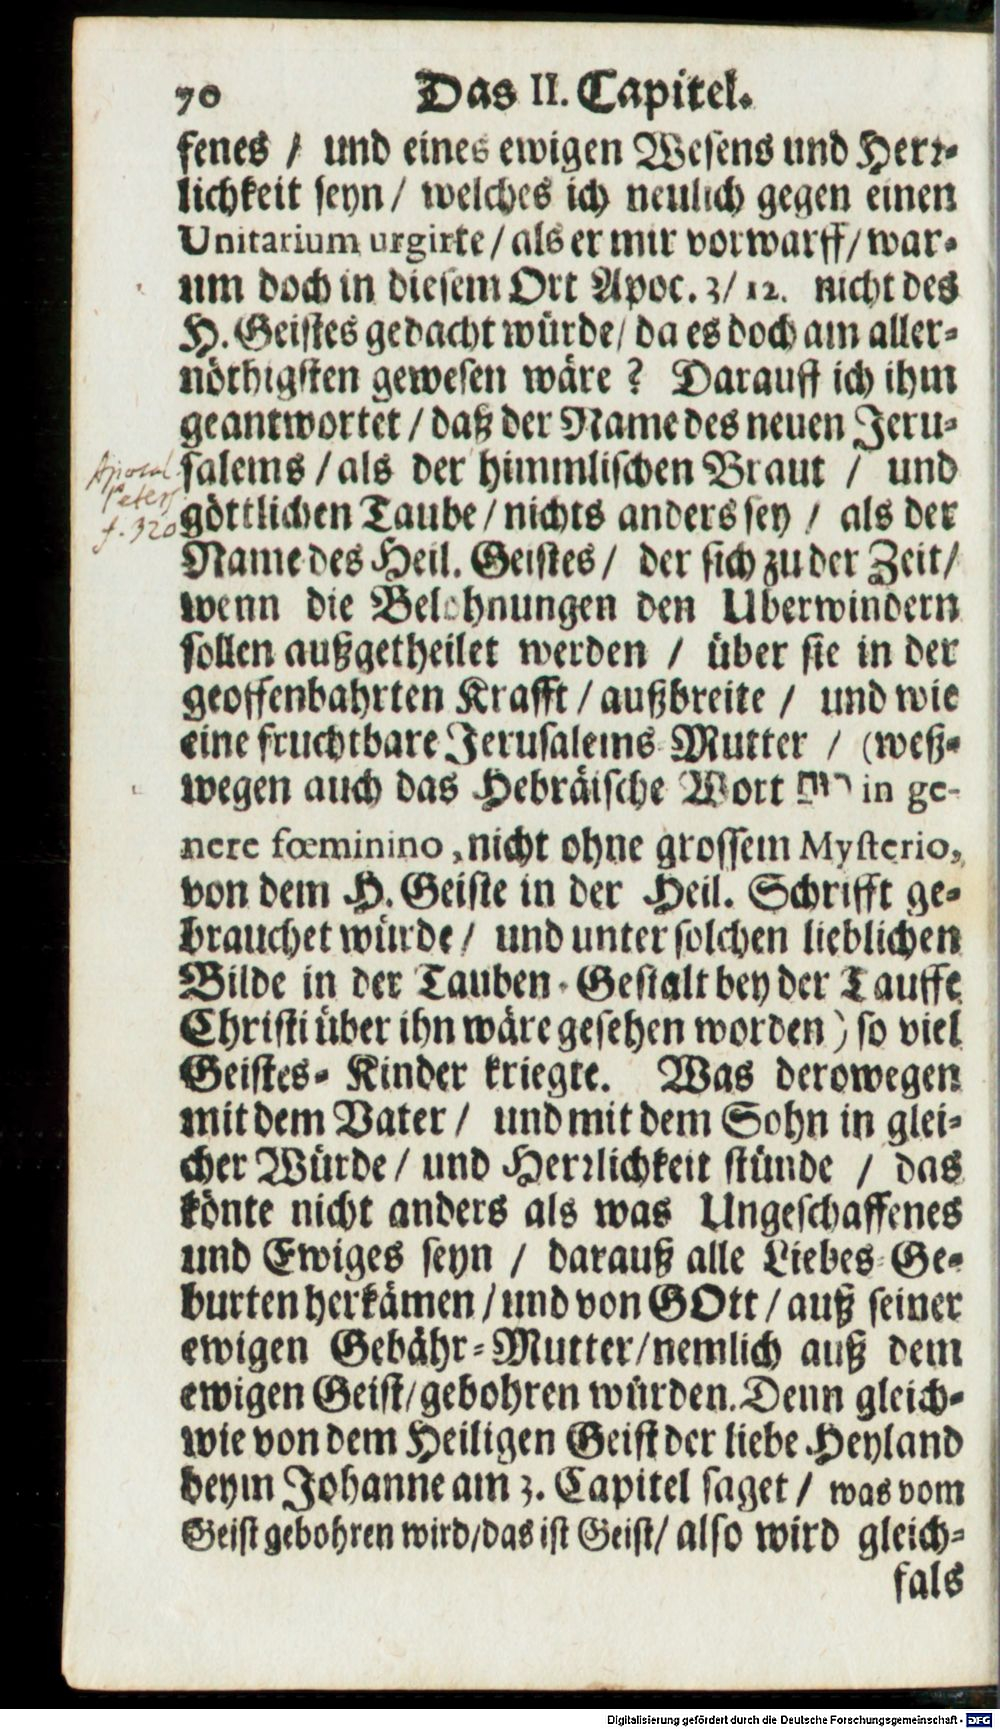 70 Das II. Capitel.
fenes / und eines ewigen Wesens und Herr-
lichkeit seyn / welches ich neulich gegen einen
Unitarium urgirte / als er mir vorwarff / war-
um doch in diesem Ort Apoc. 3/ 12. nicht des
H. Geistes gedacht würde / da es doch am aller-
nöthigsten gewesen wäre ? Darauff ich ihm
geantwortet / daß der Name des neuen Jeru-
salems / als der himmlischen Braut / und
göttlichen Taube / nichts anders sey / als der
Name des Heil. Geistes / der sich zu der Zeit /
wenn die Belohnungen den Uberwindern
sollen außgetheilet werden / über sie in der
geoffenbahrten Krafft / außbreite / und wie
eine fruchtbare Jerusalems-Mutter / (weß-
wegen auch das Hebräische Wort רוח in ge-
nere fœminino, nicht ohne grossem Mysterio,
von dem H. Geiste in der Heil. Schrifft ge-
brauchet würde / und unter solchen lieblichen
Bilde in der Tauben-Gestalt bey der Tauffe
Christi über ihn wäre gesehen worden) so viel
Geistes-Kinder kriegte. Was derowegen
mit dem Vater / und mit dem Sohn in glei-
cher Würde / und Herrlichkeit stünde / das
könte nicht anders als was Ungeschaffenes
und Ewiges seyn / darauß alle Liebes-Ge-
burten herkämen / und von GOtt / auß seiner
ewigen Gebähr-Mutter / nemlich auß dem
ewigen Geist / gebohren würden. Denn gleich-
wie von dem Heiligen Geist der liebe Heyland
beym Johanne am 3. Capitel saget / was vom
Geist gebohren wird / das ist Geist / also wird gleich-
fals
f. 320
Digitalisierung gefördert durch die Deutsche Forschungsgemeinschaft - DFG